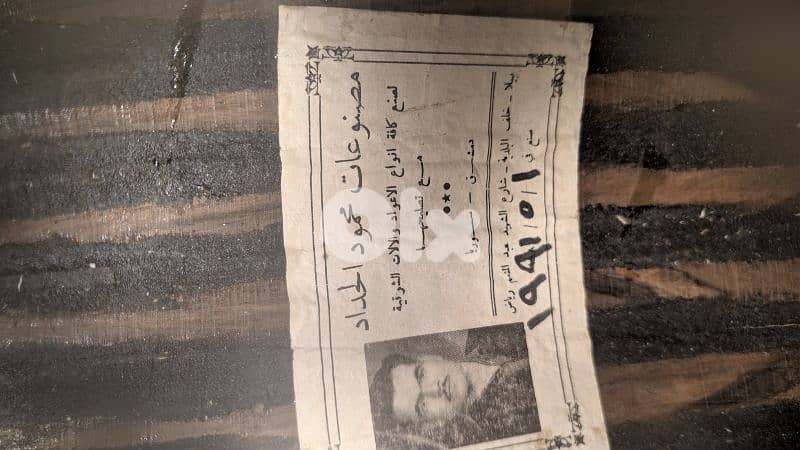 مصنوعات محمود الحداد
لصنع كافة انواع الاعواد والالات الشرقية
مع تصليحها
دمشق - سوريا
يلا - خلف البلدية - شارع الشهيد عبد المنعم رياض
صنع في ١٩٩١/٥/١
olx